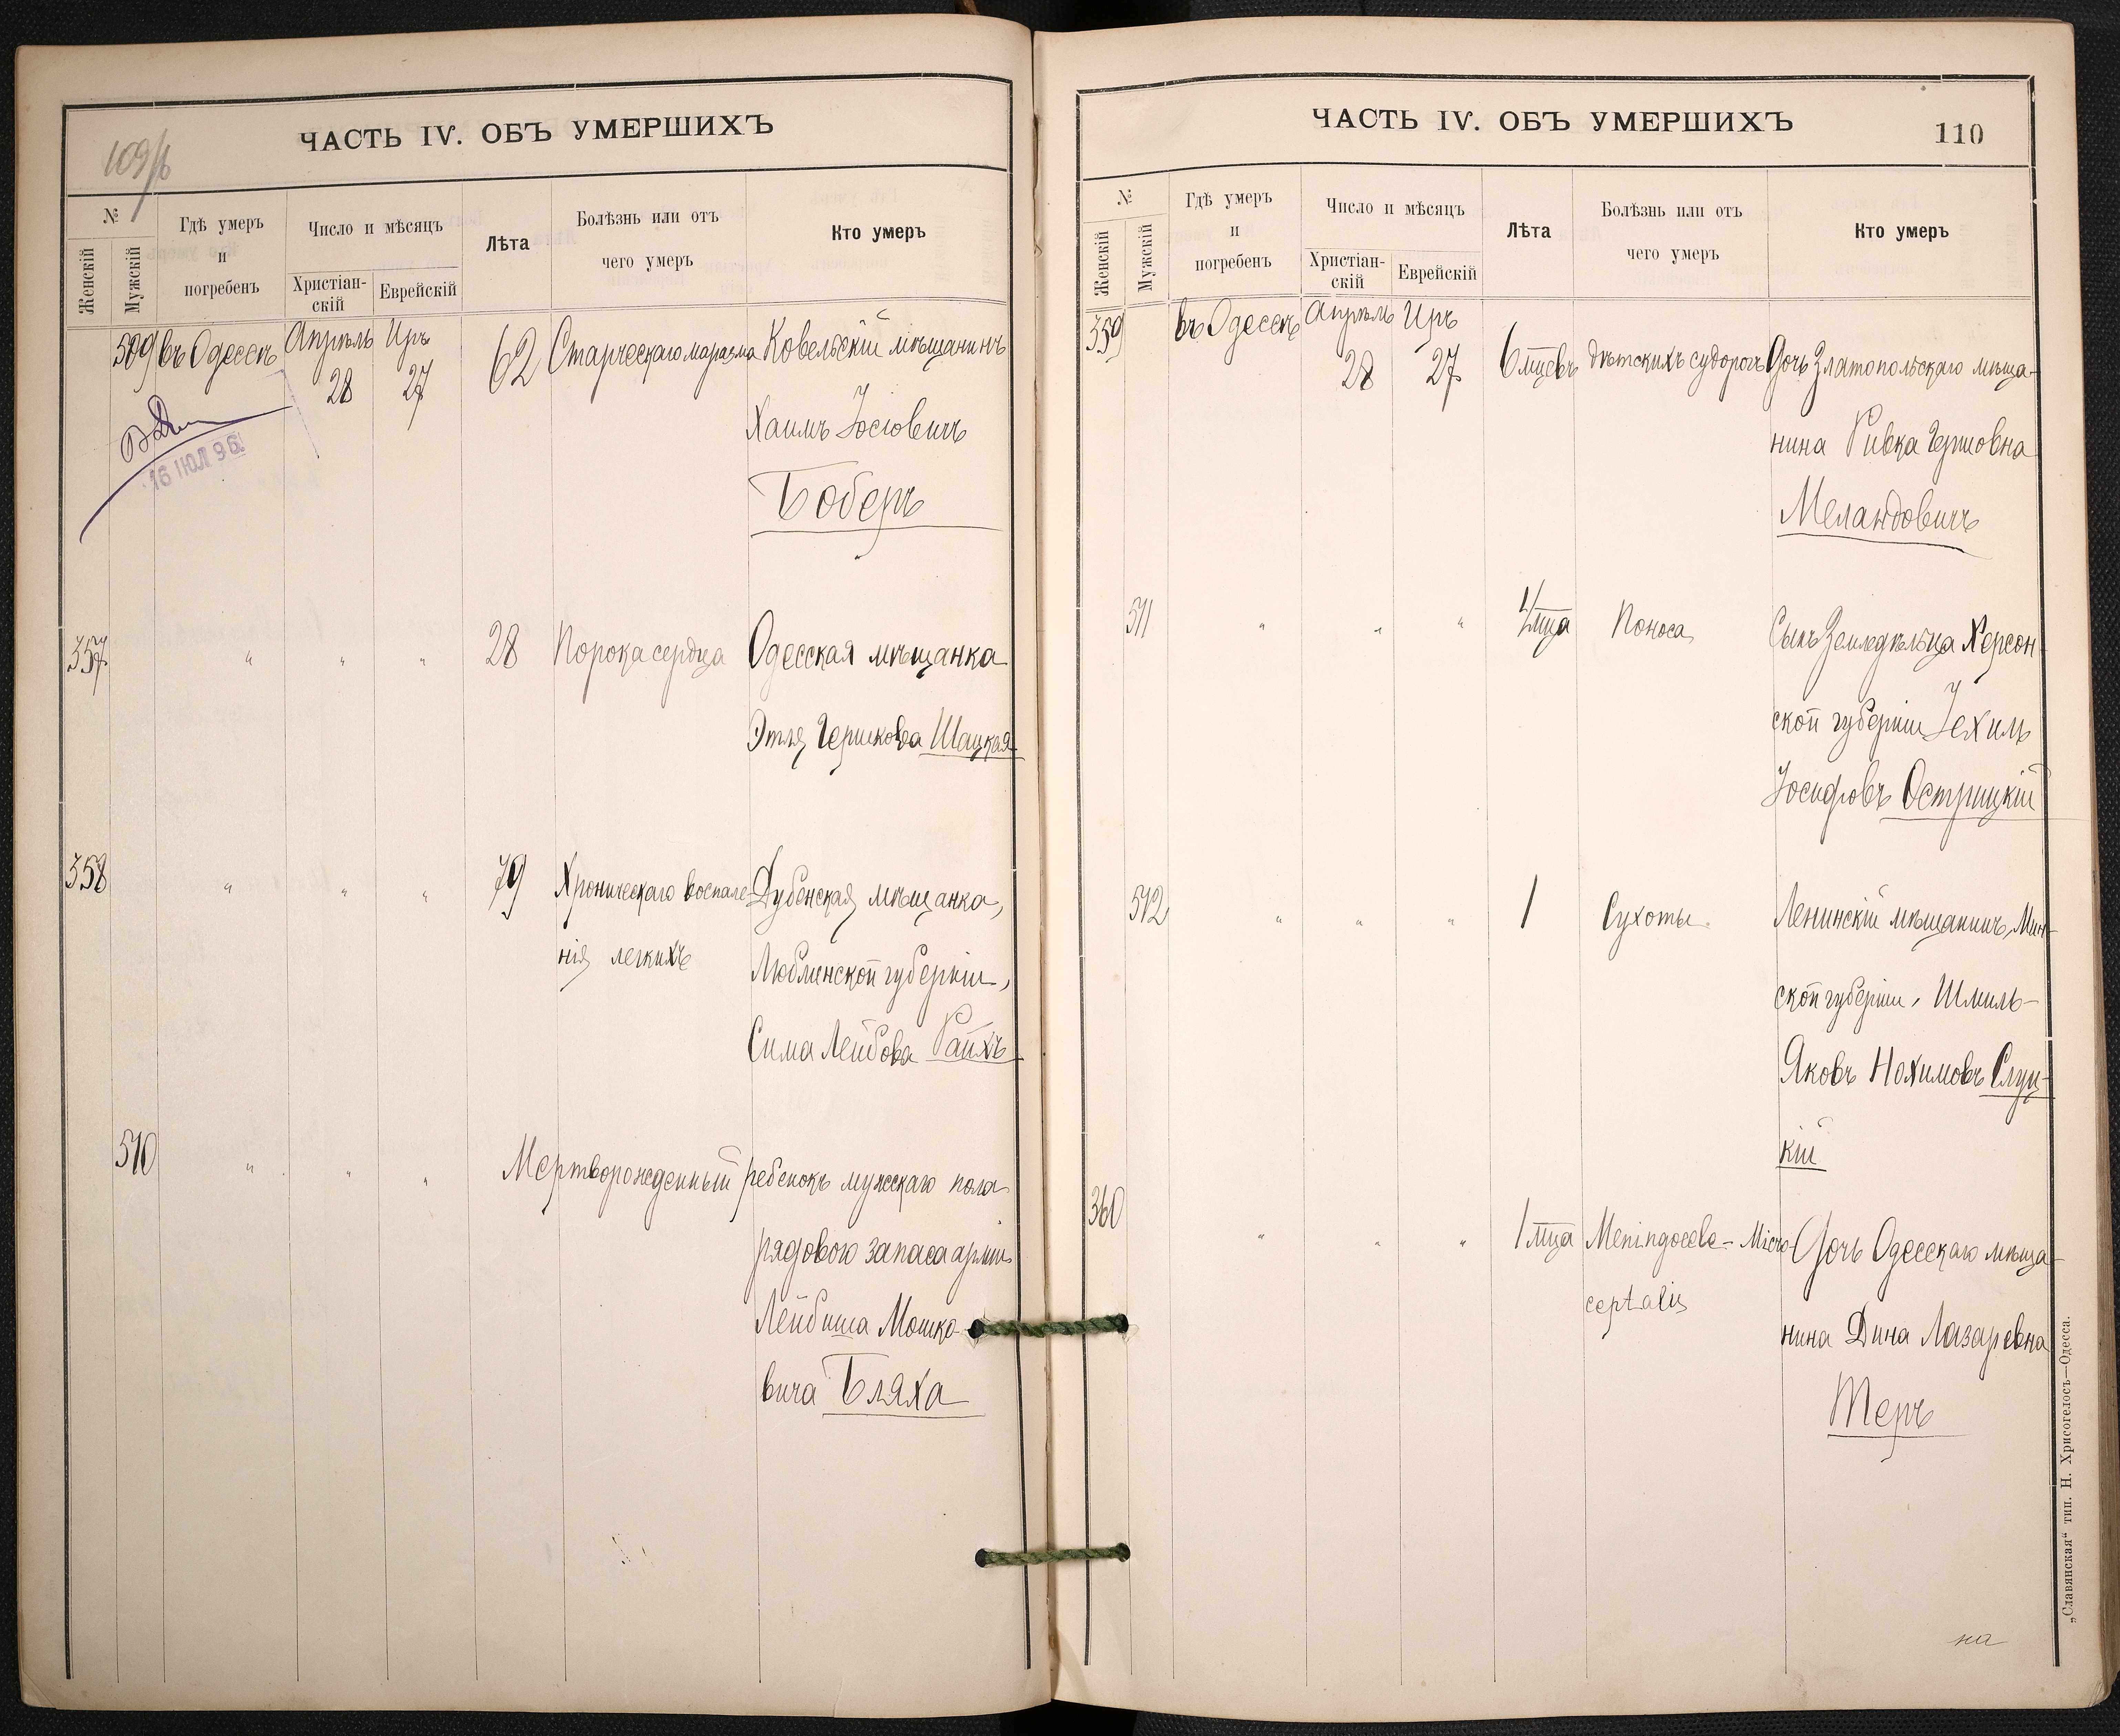 109/б
ЧАСТЬ IV. ОБЪ УМЕРШИХЪ
№
Женскій
Мужскій
Гдѣ умеръ
и
погребенъ
Число и мѣсяцъ
Христіан-
скій
Еврейскій
Лѣта
Болѣзнь или отъ
чего умеръ
Кто умеръ
509 въ Одессѣ Апрѣль 28 Иръ 27 62 Старческаго маразма Ковельскій мѣщанинъ
Хаимъ Іосіовичъ
Боберъ
16 ІЮЛ 96
357 " " " 28 Порока сердца Одесская мѣщанка
Этля Гершкова Шацкая
358 " " " 79 Хроническаго воспале- Дубенская мѣщанка,
нія легкихъ Люблинской губерніи,
Сима Лейбова Райхъ
510 " " " Мертворожденный ребенокъ мужскаго пола
рядового запаса арміи
Лейбиша Мошко-
вича Бляха
ЧАСТЬ IV. ОБЪ УМЕРШИХЪ
110
№
Женскій
Мужскій
Гдѣ умеръ
и
погребенъ
Число и мѣсяцъ
Христіан-
скій
Еврейскій
Лѣта
Болѣзнь или отъ
чего умеръ
Кто умеръ
359 въ Одессѣ Апрѣль 28 Иръ 27 6 мцевъ дѣтскихъ судорогъ Дочь Златопольскаго мѣща-
нина Ривка Гершовна
Меламдовичъ
511 " " " 1/2 мца Поноса Сынъ Земледѣльца Херсон-
ской губерніи Іехиль
Іосифовъ Острицкій
512 " " " 1 Сухоты Ленинскій мѣщанинъ, Мин-
ской губерніи, Шмиль-
Яковъ Нохимовъ Слуц-
кій
360 " " " 1 мца Meningocele - Micro- Дочь Одесскаго мѣща-
ceptalis нина Дина Лазаревна
Теръ
на
„Славянская“ тип. Н. Хрисогелосъ—Одесса.